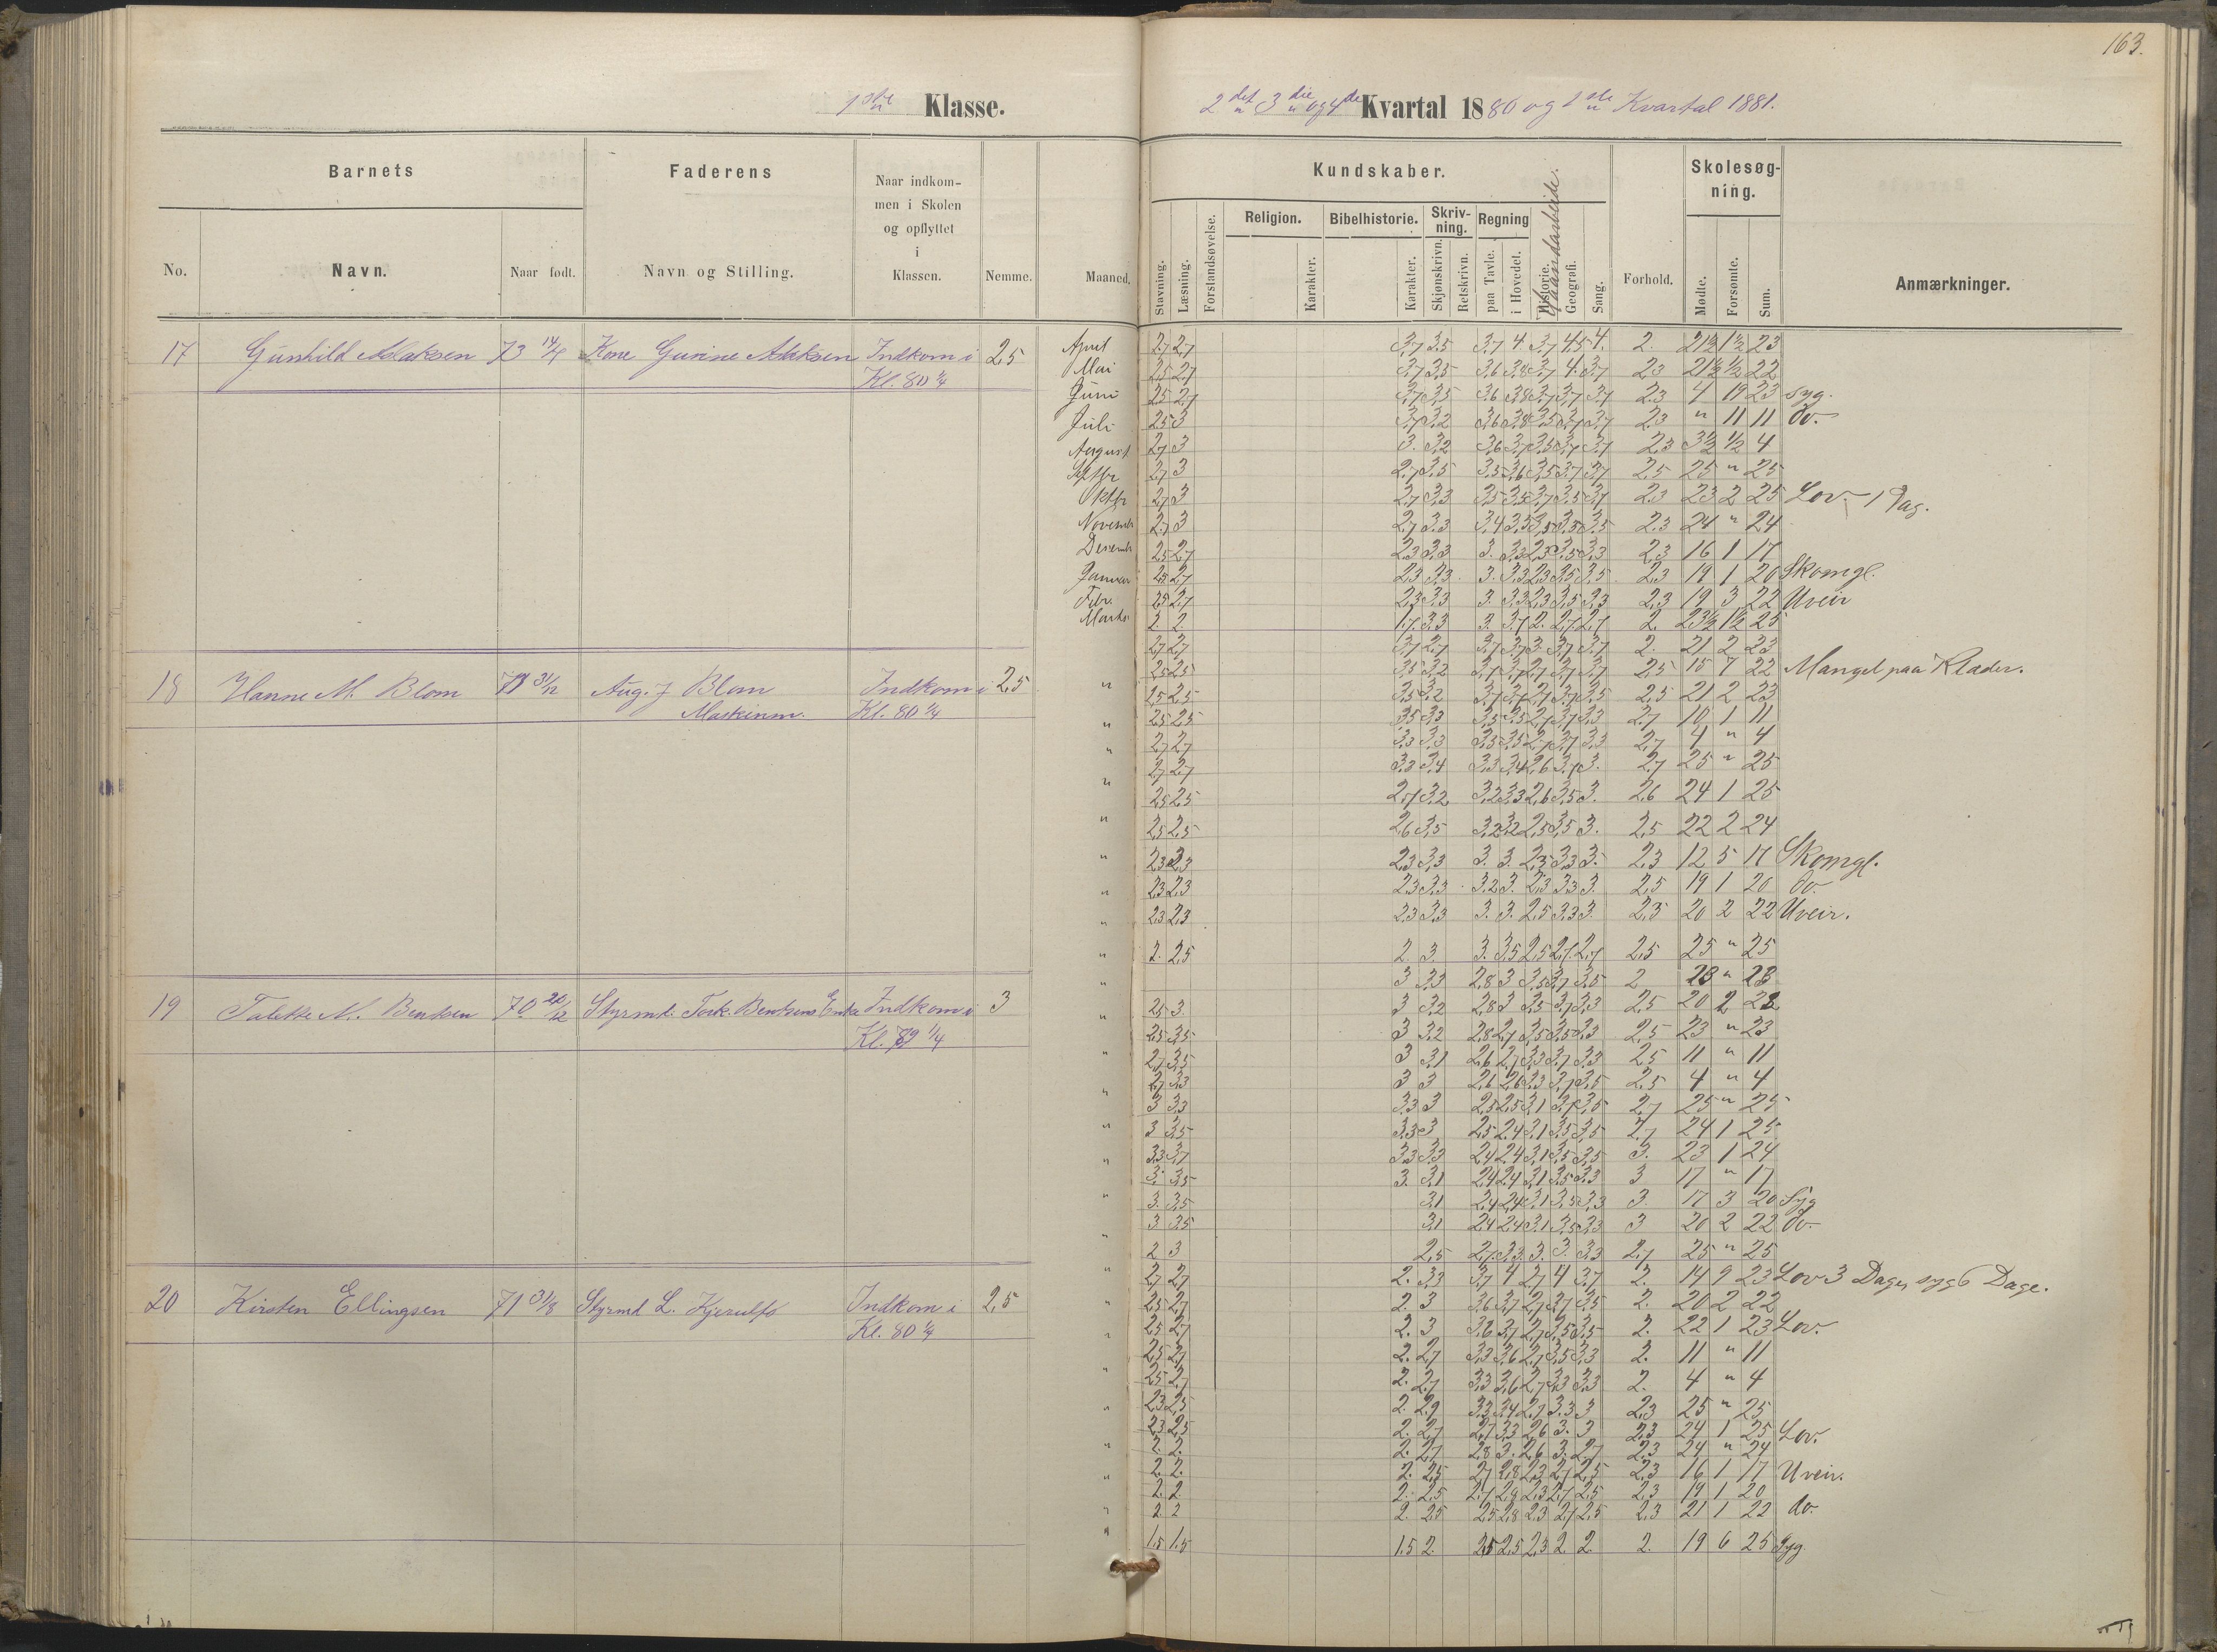 163.
1ste Klasse.
2det 3die og 4de Kvartal 1880 og 1ste Kvartal 1881.
Barnets
Faderens
Naar indkom-
men i Skolen
og opflyttet
i
Klassen.
No.
Navn.
Naar født.
Navn og Stilling.
Nemme.
Maaned.
Kundskaber.
Skolesøg-
ning.
Stavning.
Læsning.
Forstandsøvelse.
Religion.
Karakter.
Bibelhistorie.
Karakter.
Skriv-
ning.
Skjønskrivn.
Retskrivn.
Regning
paa Tavle.
i Hovedet.
Historie.
Haandarbeide.
Geografi.
Sang.
Forhold.
Mødte.
Forsømte.
Sum.
Anmærkninger.
17 Gunhild Aslaksen 73 Kone Gurine Aslaksen Indkom i 2,5
Kl. 80 1/4
April 2,7 2,7 3,7 3,5 3,7 4. 3,7 4,5 4. 2. 21½ 1½ 23
Mai 2,5 2,7 3,7 3,5 3,6 3,8 3,7 4. 3,7 2,3 21½ ½ 22
Juni 2,5 2,7 3,7 3,5 3,6 3,8 3,7 3,7 3,7 2,3 4 19 23 syg.
Juli 2,5 3 3,7 3,2 3,6 3,8 3,5 3,7 3,7 2,3 " 11 11 do.
August 2,7 3 3. 3,2 3,6 3,7 3,5 3,7 3,7 2,3 3½ ½ 4
Septbr 2,7 3 2,7 3,5 3,5 3,6 3,5 3,7 3,7 2,5 25 " 25
Oktbr 2,7 3 2,7 3,3 3,5 3,5 3,7 3,5 3,7 2,3 23 2 25 Lov. 1 Dag.
Novemb 2,7 3 2,7 3,3 3,4 3,5 3,5 3,5 3,5 2,3 24 " 24
Desemb 2,5 2,7 2,3 3,3 3. 3,3 2,3 3,5 3,3 2,3 16 1 17
Januar 2,5 2,7 2,3 3,3 3. 3,3 2,3 3,5 3,5 2,3 19 1 20 Skomgl.
Febr. 2,5 2,7 2,3 3,3 3. 3,3 2,3 3,5 3,3 2,3 19 3 22 Uveir
Marts 2 2. 1,7 3,3 3. 3,7 2. 2,7 2,7 2. 23½ 1½ 25
2,7 2,7 3,7 2,7 3,7 3,7 3. 3,7 3,7 2. 21 2 23
18 Hanne M. Blom 31/12 Aug. J Blom Indkom i 2,5
Maskinm. Kl. 80 1/4
2,5 2,5 3,5 3,2 3,7 3,7 2,7 3,7 3,7 2,5 15 7 22 Mangel paa Klæder.
2,5 2,5 3,5 3,2 3,7 3,7 2,7 3,7 3,5 2,5 21 2 23
2,5 2,5 3,5 3,3 3,5 3,5 2,7 3,7 3,3 2,7 10 1 11
2,7 2,7 3,3 3,3 3,3 3,5 2,7 3,7 3,3 2,7 4 " 4
2,7 2,7 3,3 3,4 3,3 3,4 2,6 3,7 3. 2,7 25 " 25
2,5 2,5 2,7 3,2 3,2 3,3 2,6 3,5 3. 2,6 24 1 25
2,5 2,5 2,6 3,5 3,2 3,2 2,5 3,5 3. 2,5 22 2 24
2,3 2,3 2,3 3,3 3. 3. 2,3 3,3 3. 2,3 12 5 17 Skomgl.
2,3 2,3 2,3 3,3 3,2 3. 2,3 3,3 3. 2,5 19 1 20 do.
2,3 2,3 2,3 3,3 3. 3. 2,5 3,3 3. 2,5 20 2 22 Uveir.
2. 2,5 2. 3. 3. 3,5 2,5 2,7 2,7 2,5 25 " 25
3 3,3 2,8 3 3,5 3,7 3,5 2 23 " 23
19 Talette N. Bentsen 70 Styrmd. Tork. Bentsens Enke Indkom i 3
Kl. 1/4
2,5 3. 3 3,2 2,8 3 3,5 3,7 3,3 2,5 20 2 22
2,5 3,5 3 3,2 2,8 2,7 3,5 3,5 3,3 2,5 23 " 23
2,7 3,5 3 3,1 2,6 2,7 3,3 3,7 3,3 2,5 11 " 11
2,7 3,3 3 3 2,6 2,6 3,3 3,7 3,5 2,5 4 " 4
3 3,3 3,3 3 2,5 2,5 3,1 3,7 3,5 2,7 25 " 25
3 3,5 3,3 3 2,5 2,4 3,1 3,5 3,5 2,7 24 1 25
3,3 3,7 3,3 3,3 2,4 2,4 3,1 3,5 3,5 3. 23 1 24
3. 3,5 3. 3,1 2,4 2,4 3,1 3,5 3,3 3 17 " 17
3. 3,5 3,1 2,4 2,4 3,1 3,5 3,3 3. 17 3 20 Syg
3 3,5 3,1 2,4 2,4 3,1 3,5 3,3 3 20 2 22 do.
2 3 2,5 2,7 3,3 3. 3. 3,3 2,7 25 " 25
2,7 2,7 2. 3,3 3,7 4 2,7 4 3,7 2. 14 9 23 Lov 3 Dage, syg 6 Dage.
20 Kirsten Ellingsen 71 31/8 Styrmd L. Kjerulfs Indkom i 2,5
Kl. 80 1/4
2,5 2,7 2. 3 3,6 3,7 2,7 3,7 3,5 2. 20 2 22
2,5 2,7 2. 3 3,6 3,7 2,7 3,5 3,5 2. 22 1 23 Lov.
2,5 2,7 2. 2,7 3,3 3,6 2,7 3,5 3,3 2. 11 " 11
2,5 2,7 2. 2,7 3,3 3,6 2,7 3,3 3,3 2. 4 " 4
2,3 2,5 2. 2,9 3,3 3,4 2,7 3,3 3 2,3 25 " 25
2,3 2,5 2. 2,7 2,7 3,3 2,6 3. 3 2,3 24 1 25 Lov.
2. 2. 2. 2,7 2,8 3. 2,6 3. 2,7 2,3 24 " 24
2. 2. 2. 2,5 2,7 2,8 2,3 2,7 2,5 2,3 16 1 17 Uveir.
2. 2. 2. 2,5 2,7 2,8 2,3 2,7 2,5 2,3 19 1 20
2. 2 2. 2,5 2,5 2,8 2,3 2,7 2,5 2,3 21 1 22 do.
1,5 1,5 1,5 2. 2,5 2,5 2,3 2. 2. 2. 19 6 25 Syg.